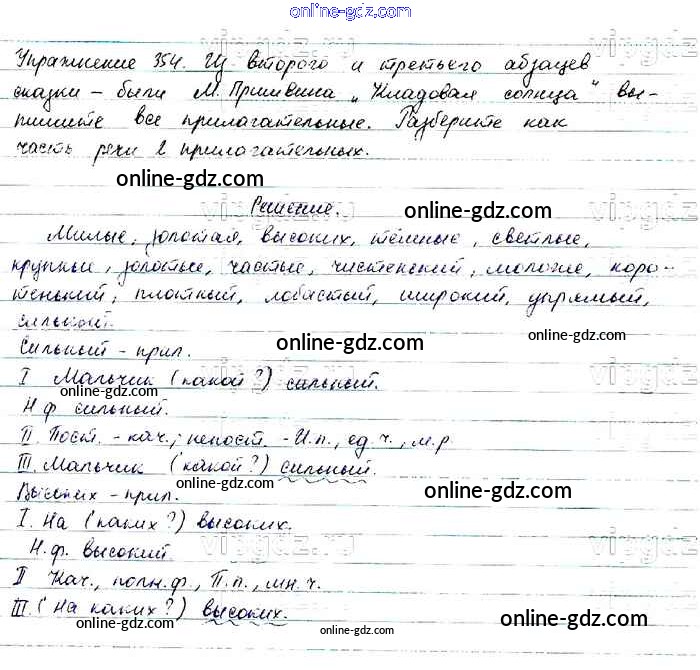 online-gdz.com
online-gdz.com
Упражнение 354. Из второго и третьего абзацев
сказки – были М. Пришвина „Кладовая солнца" вы-
пишите все прилагательные. Разберите как
часть речи 2 прилагательных.
online-gdz.com
Решение.
online-gdz.com
Милые, золотая, высоких, тёмные, светлые,
крупны, золотые, частые, чистенский, мологие, коро-
тенький, плотный, лобастый, широкий, упрямый,
сильной.
online-gdz.com
online-gdz.com
Сильный – прил.
I Мальчик (какой?) сильный.
online-gdz.com
online-gdz.com
Н.ф. сильный.
II. Пост. – кач.; непост. – И.п., ед.ч., м.р
III. Мальчик (какой?) сильный.
Высоких – прил.
online-gdz.com
I. На (каких?) высоких.
Н.ф. высокий.
vipgdz.ru
II Кач., полн.ф., П.п., мн.ч.
III. (На каких?) высоких.
online-gdz.com
online-gdz.com
online-gdz.com